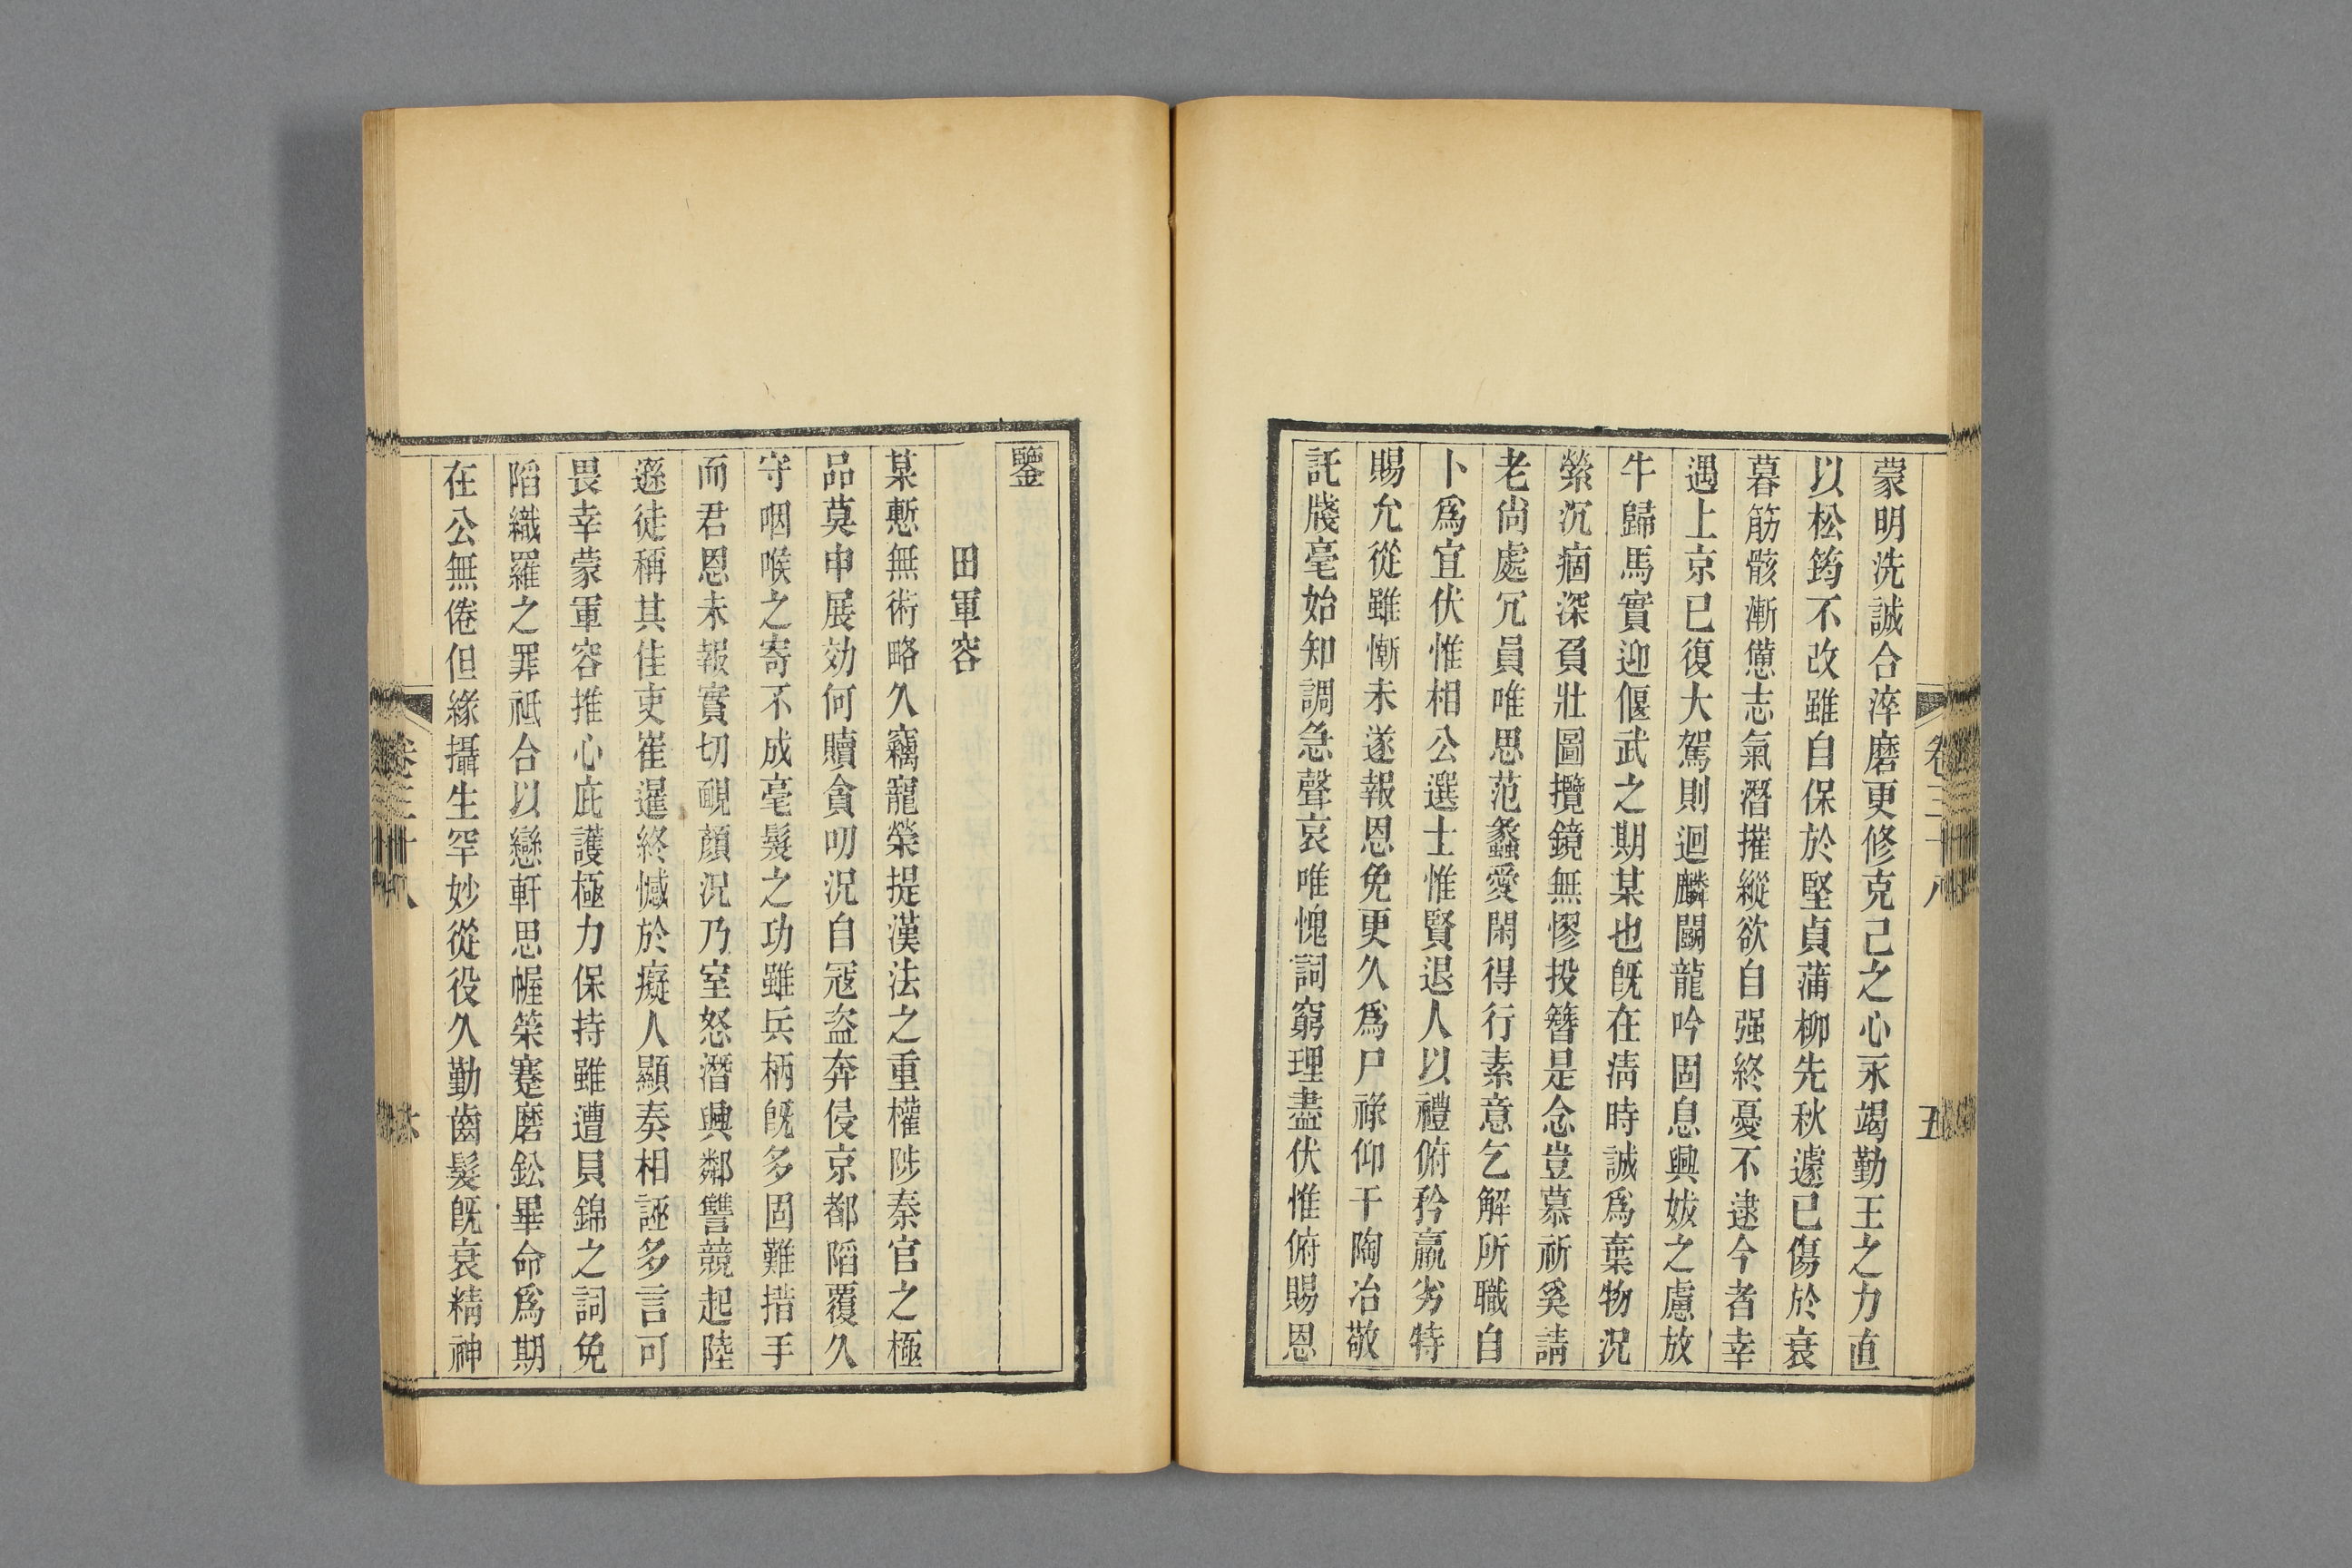 蒙明洗誠合淬磨更修克己之心永竭勤王之力直
以松筠不改雖自保於堅貞蒲柳先秋遽已傷於衰
暮筋骸漸憊志氣潛摧縱欲自强終憂不逮今者幸
遇上京已復大駕則迴麟鬭龍吟固息興妭之慮放
牛歸馬實迎偃武之期某也旣在淸時誠爲棄物況
縈沉痼深負壯圖攬鏡無憀投簪是念豈慕祈奚請
老尙處冗員唯思范蠡愛閑得行素意乞解所職自
卜爲宜伏惟相公選士惟賢退人以禮俯矜羸劣特
賜允從雖慚未遂報恩免更久爲尸祿仰干陶冶敬
託牋毫始知調急聲哀唯愧詞窮理盡伏惟俯賜恩
卷三十八
五
鑒
田軍容
某慙無術略久竊寵榮提漢法之重權陟秦官之極
品莫申展効何贖貪叨況自冦盜奔侵京都陷覆久
守咽喉之寄不成毫髮之功雖兵柄旣多固難措手
而君恩未報實切靦顏況乃室怒潛興鄰讐競起陸
遜徒稱其佳吏崔暹終憾於癡人顯奏相誣多言可
畏幸蒙軍容推心庇護極力保持雖遭貝錦之詞免
陷織羅之罪祗合以戀軒思幄策蹇磨鈆畢命爲期
在公無倦但緣攝生罕妙從役久勤齒髮旣衰精神
卷三十八
六